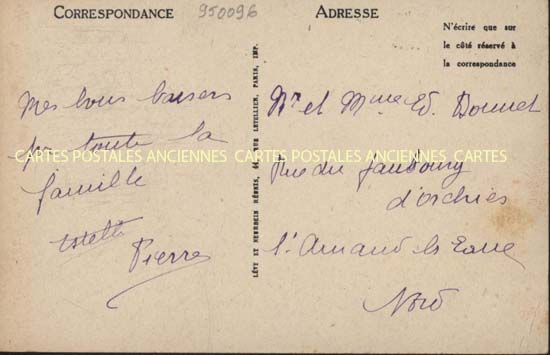 CORRESPONDANCE
950096
ADRESSE
N'écrire que sur
le côté réservé à
la correspondance
Mes bons baisers
pr toute la
famille
Pierre
LÉVY ET NEURDEIN RÉUNIS, 44, RUE LETELLIER, PARIS, IMP.
Mr et Mme Ed. Donnet
Rue du faubourg
d'orchies
St Amand les Eaux
Nord
CARTES POSTALES ANCIENNES CARTES POSTALES ANCIENNES CARTES